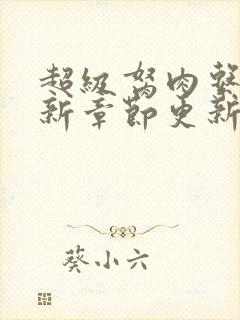 超級驽肉系
新章節更新
葵小六